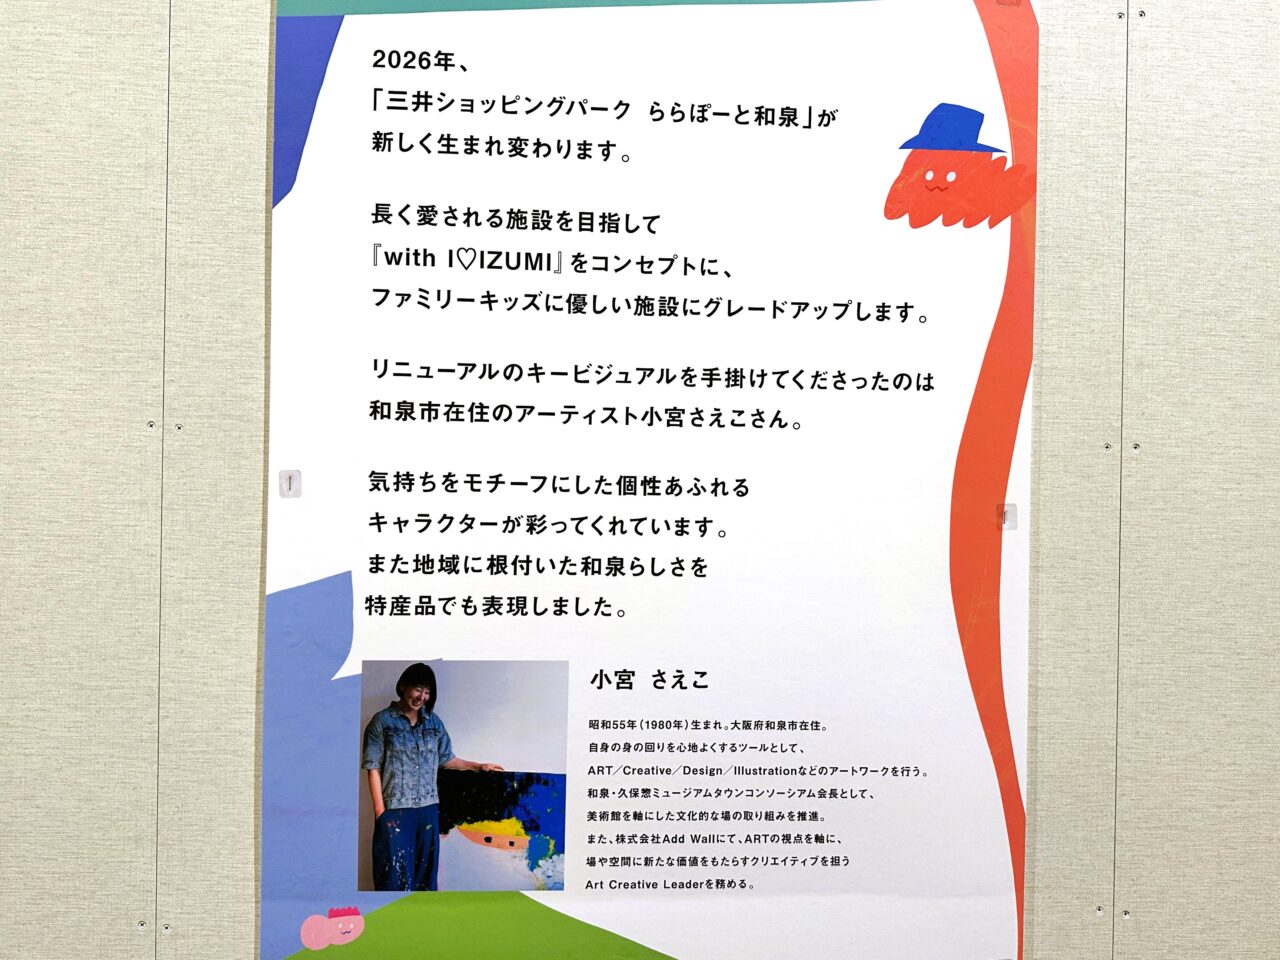 2026年、
「三井ショッピングパーク ららぽーと和泉」が
新しく生まれ変わります。
長く愛される施設を目指して
『with I♡IZUMI』をコンセプトに、
ファミリーキッズに優しい施設にグレードアップします。
リニューアルのキービジュアルを手掛けてくださったのは
和泉市在住のアーティスト小宮さえこさん。
気持ちをモチーフにした個性あふれる
キャラクターが彩ってくれています。
また地域に根付いた和泉らしさを
特産品でも表現しました。
小宮 さえこ
昭和55年(1980年)生まれ。大阪府和泉市在住。
自身の身の回りを心地よくするツールとして、
ART/Creative/Design/Illustrationなどのアートワークを行う。
和泉・久保惣ミュージアムタウンコンソーシアム会長として、
美術館を軸にした文化的な場の取り組みを推進。
また、株式会社Add Wallにて、ARTの視点を軸に、
場や空間に新たな価値をもたらすクリエイティブを担う
Art Creative Leaderを務める。